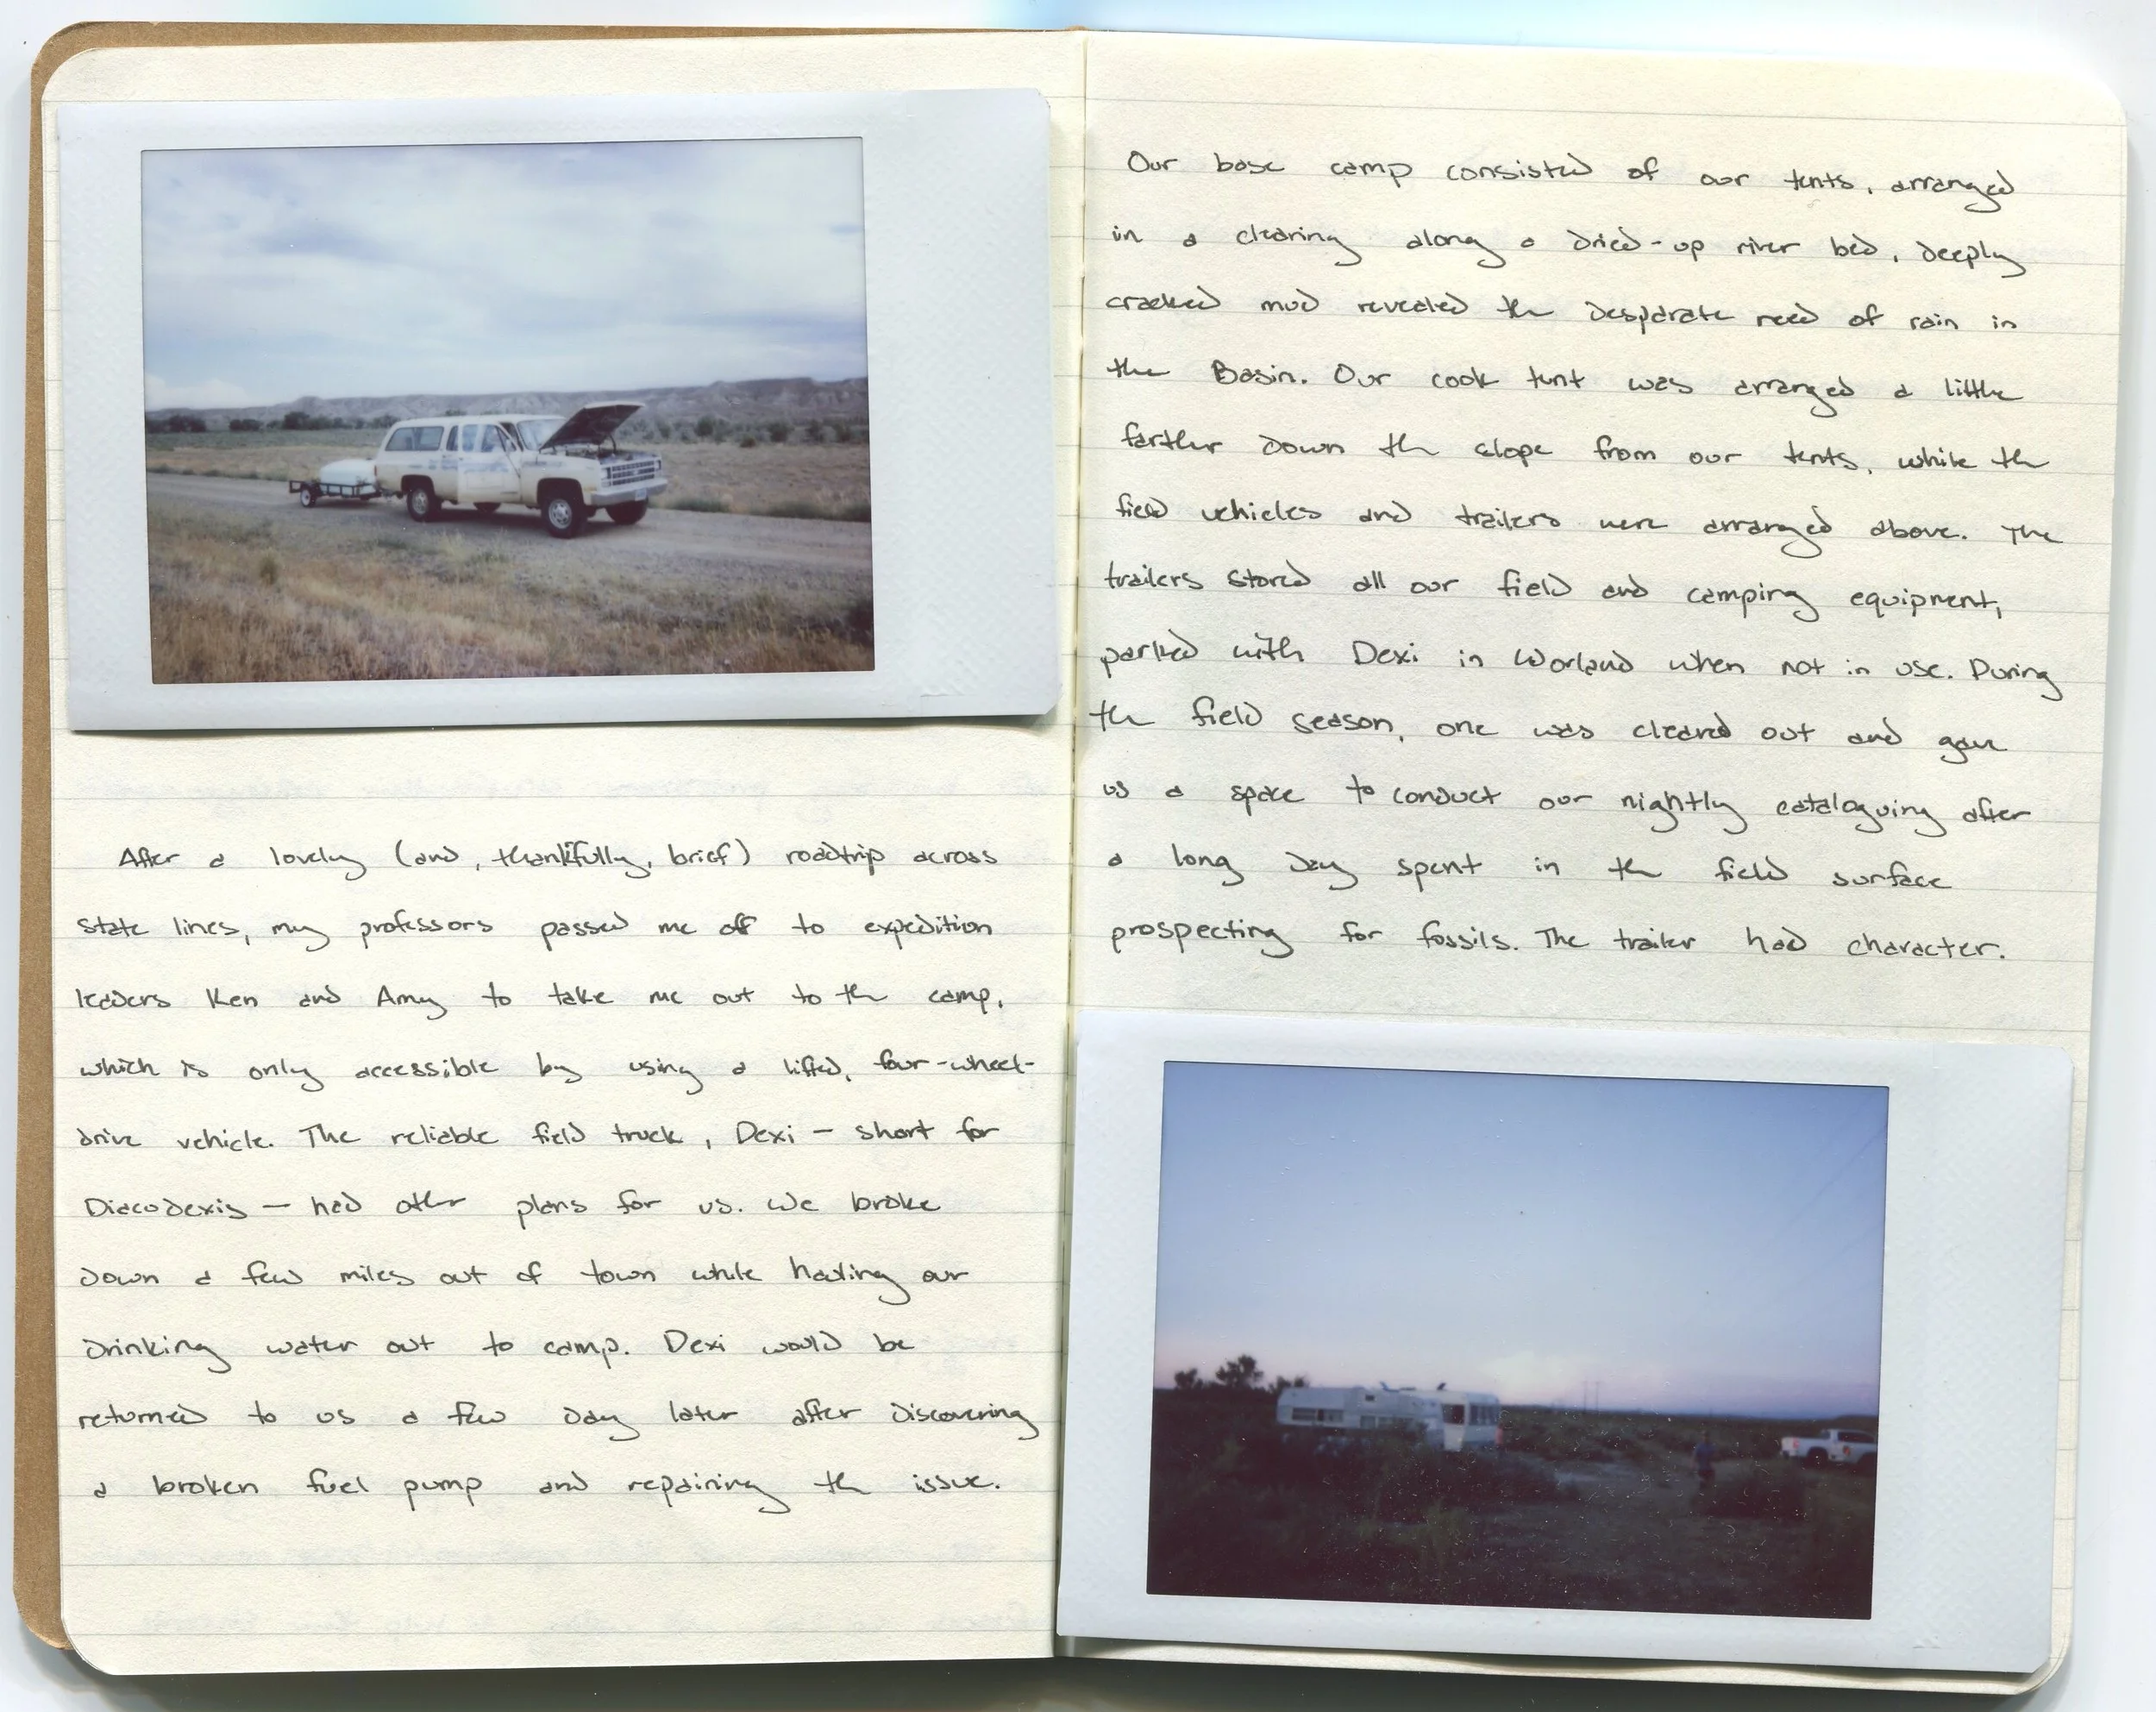 After a lovely (and, thankfully, brief) roadtrip across
state lines, my professors passed me off to expedition
leaders Ken and Amy to take me out to the camp,
which is only accessible by using a lifted, four-wheel-
drive vehicle. The reliable field truck, Dexi – short for
Diacodexis – had other plans for us. We broke
down a few miles out of town while hauling our
drinking water out to camp. Dexi would be
returned to us a few day later after discovering
a broken fuel pump and repairing the issue.
Our base camp consisted of our tents, arranged
in a clearing along a dried-up river bed, deeply
cracked mud revealed the desparate need of rain in
the Basin. Our cook tent was arranged a little
farther down the slope from our tents, while the
field vehicles and trailers were arranged above. The
trailers stored all our field and camping equipment,
parked with Dexi in Worland when not in use. During
the field season, one was cleared out and gave
us a space to conduct our nightly cataloguing after
a long day spent in the field surface
prospecting for fossils. The trailer had character.